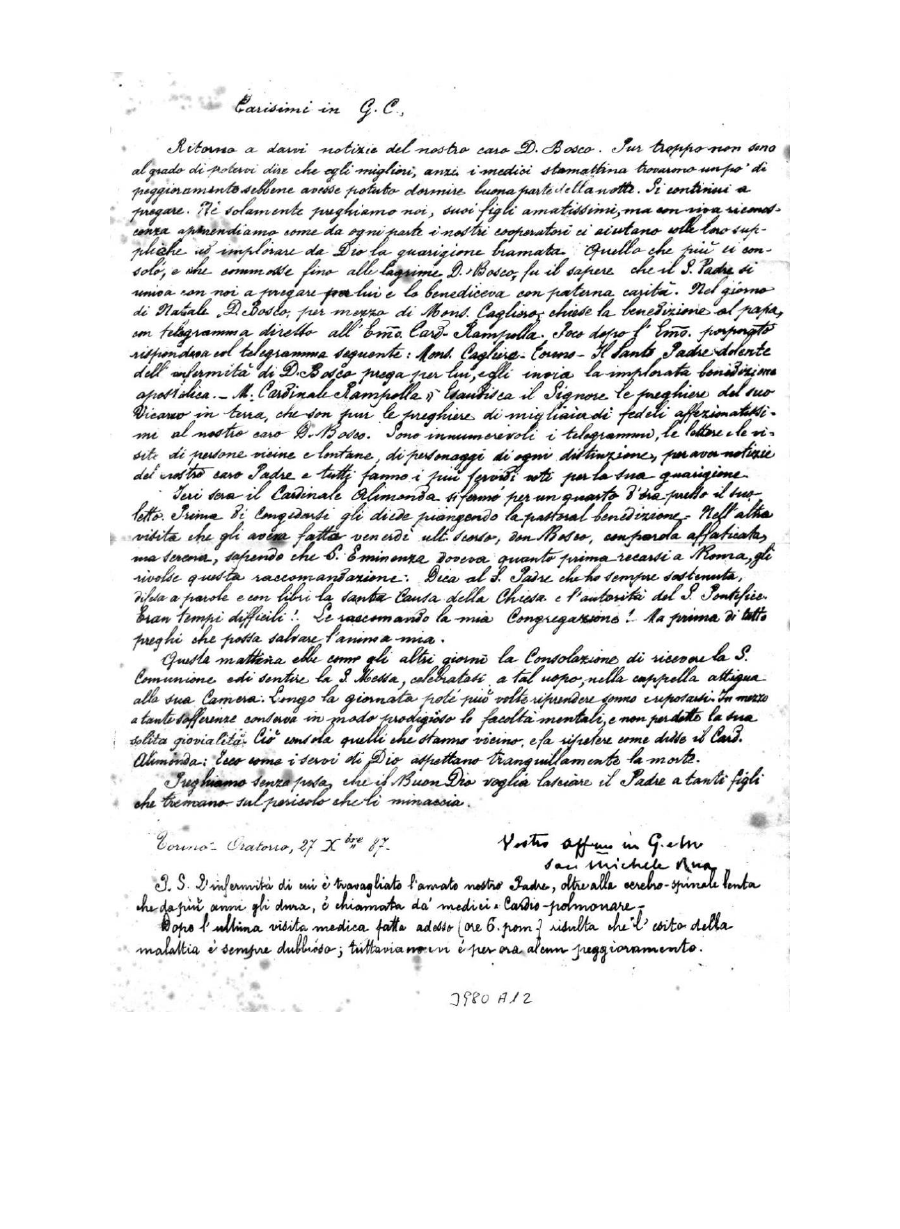 Carisimi in G. C.,
Ritorno a darvi notizie del nostro caro D. Bosco. Pur troppo non sono
al grado di potervi dire che egli migliori, anzi i medici stamattina trovarono un po' di
peggioramento sebbene avesse potuto dormire buona parte della notte. Si continui a
pregare. Nè solamente preghiamo noi, suoi figli amatissimi, ma con viva ricono-
scenza apprendiamo come da ogni parte i nostri cooperatori ci aiutano colle loro sup-
pliche ad implorare da Dio la guarigione bramata. Quello che più ci con-
solò, e che commosse fino alle lagrime D. Bosco, fu il sapere che il S. Padre si
univa con noi a pregare per lui e lo benediceva con paterna carità. Nel giorno
di Natale, D. Bosco, per mezzo di Mons. Cagliero, chiese la benedizione al papa,
con telegramma diretto all' Emo. Card. Rampolla. Poco dopo l' Emo. porporato
rispondeva col telegramma seguente: Mons. Cagliero - Torino - Il Santo Padre dolente
dell' infermità di D. Bosco prega per lui, e gli invia la implorata benedizione
apostolica. - M. Cardinale Rampolla » Esaudisca il Signore le preghiere del suo
Vicario in terra, che son pur le preghiere di migliaia di fedeli affezionatissi-
mi al nostro caro D. Bosco. Sono innumerevoli i telegrammi, le lettere e le vi-
site di persone vicine e lontane, di personaggi di ogni distinzione, per aver notizie
del nostro caro Padre e tutti fanno i più fervidi voti per la sua guarigione.
Ieri sera il Cardinale Alimonda si fermò per un quarto d'ora presso il suo
letto. Prima di congedarsi gli diede piangendo la pastoral benedizione. Nell'altra
visita che gli aveva fatta venerdì ult. scorso, don Bosco, con parola affaticata,
ma serena, sapendo che S. Eminenza doveva quanto prima recarsi a Roma, gli
rivolse questa raccomandazione: Dica al S. Padre che ho sempre sostenuta,
difesa a parole e con libri la santa Causa della Chiesa e l'autorità del S. Pontefice.
Eran tempi difficili! Le raccomando la mia Congregazione! Ma prima di tutto
preghi che possa salvare l'anima mia.
Questa mattina ebbe come gli altri giorni la Consolazione di ricevere la S.
Comunione e di sentire la S. Messa, celebratasi a tal uopo, nella cappella attigua
alla sua Camera. Lungo la giornata potè più volte riprendere sonno e riposarsi. In mezzo
a tante sofferenze conserva in modo prodigioso le facoltà mentali, e non perdette la sua
solita giovialità. Ciò consola quelli che stanno vicino, e fa ripetere come disse il Card.
Alimonda: Ecco come i servi di Dio aspettano tranquillamente la morte.
Preghiamo senza posa, che il Buon Dio voglia lasciare il Padre a tanti figli
che tremano sul pericolo che li minaccia.
Torino - Oratorio, 27 Xbre 87.
Vostro affmo in G. e M
sac. Michele Rua
P. S. L'infermità di cui è travagliato l'amato nostro Padre, oltre alla cerebro-spinale lenta
che da più anni gli dura, è chiamata da' medici = Cardio-polmonare -
Dopo l'ultima visita medica fatta adesso (ore 6. pom.) risulta che l' esito della
malattia è sempre dubbioso; tuttavia non vi è per ora alcun peggioramento.
3980 A12